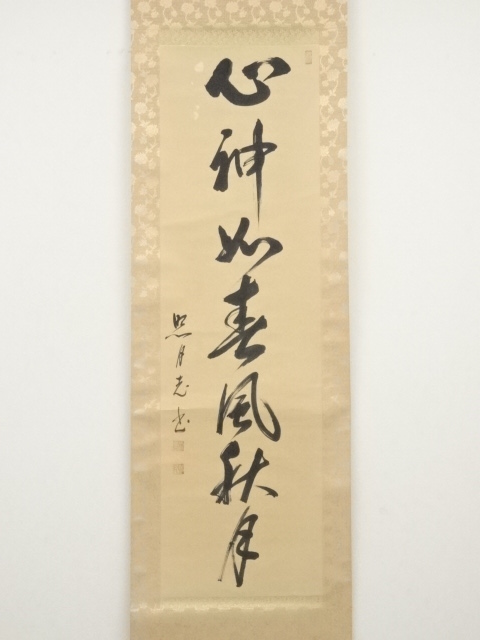 心神如春風秋月
照月老書